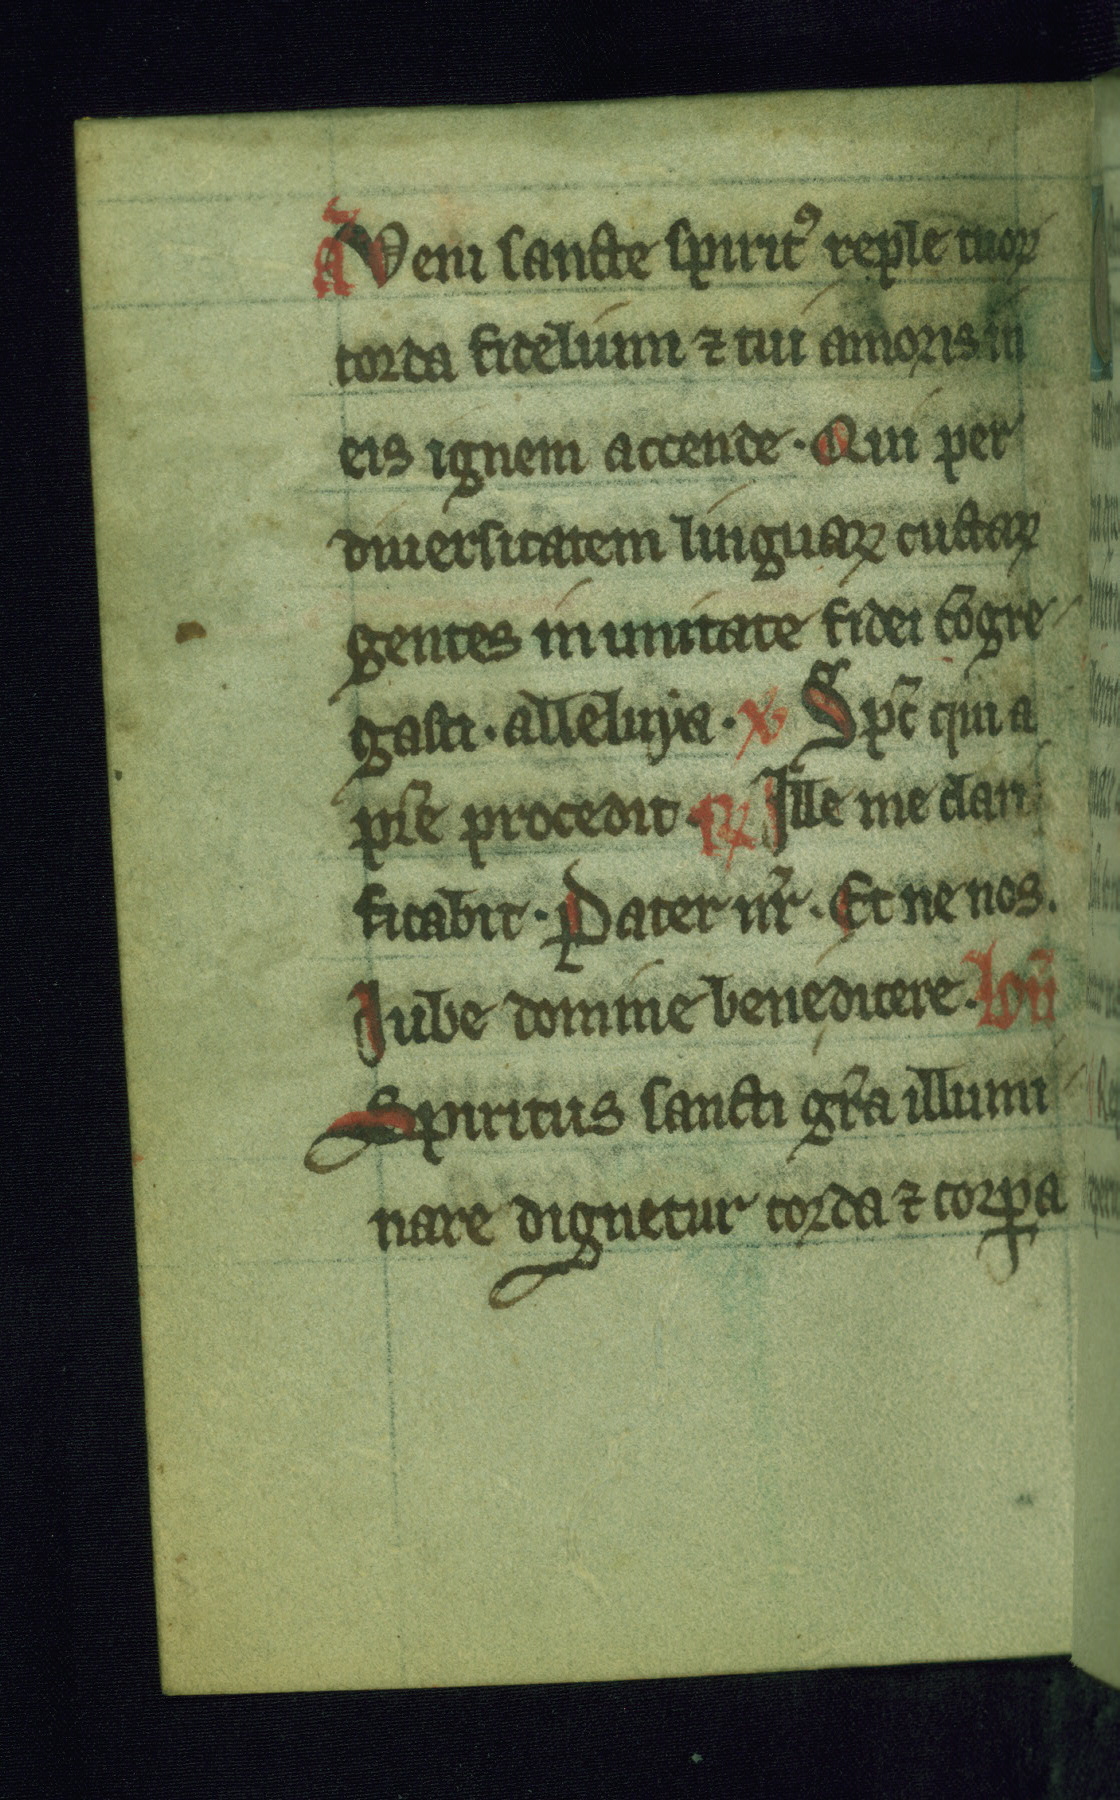 A Veni sancte spiritꝰ reple tuoꝝ
corda fidelium ⁊ tui amoris in
eis ignem accende · Qui per
diuersitatem linguaꝝ cuctaꝝ
gentes in unitate fidei cōgre
gasti · alleluya · ℣ Sp̄c qui a
pr̄e procedit · ℟ Ille me clari
ficabit · Pater nr̄ · Et ne nos.
Jube domine benedicere. bn̄
Spiritus sancti gr̄a illumi
nare dignetur corda ⁊ corꝑa